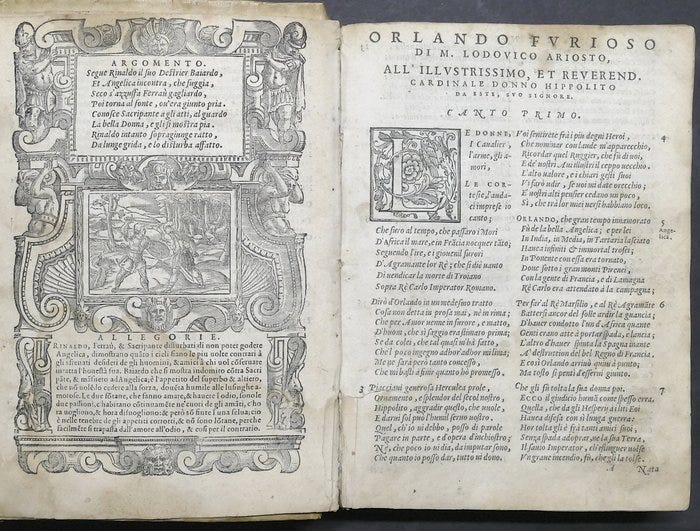 ARGOMENTO.
Segue Rinaldo il suo Destrier Baiardo,
Et Angelica incontra, che fuggia,
Seco s'azzuffa Ferraù gagliardo,
Poi torna al fonte, ou'era giunto pria.
Conosce Sacripante a gli atti, al guardo
La bella Donna, e gli si mostra pia.
Rinaldo intanto sopragiunge ratto,
Da lunge grida, e lo disturba affatto.
ALLEGORIE.
RINALDO, Ferraù, & Sacripante disturbati di non poter godere
Angelica, dimostrano quãto i cieli siano le piu uolte contrari à
gli sfrenati desideri de gli huomini, & amici à chi uol cõseruare
intatta l'honestà sua. Rinaldo che si mostra indomito cõtra Sacri
pãte, & mãsueto ad Angelica; è l'appetito del superbo & altiero,
che nõ uolẽdo cedere alla forza, douẽta humile alle lusinghe a-
morose. Le due fõtane, che fanno amare, & hauere l'odio, sono le
due passioni, c'habitano cõtinuamẽte ne' cuori de gli amãti, c'ho
ra uogliono, & hora disuogliono; & però stã fuste l'una selua; cio
è nelle tenebre de gli appetiti corrotti, & nõ sono lõtane, perche
facilmẽte si trapassa dall'amore all'odio, & così per il contrario.
ORLANDO FVRIOSO
DI M. LODOVICO ARIOSTO,
ALL'ILLVSTRISSIMO, ET REVEREND.
CARDINALE DONNO HIPPOLITO
DA ESTE, SVO SIGNORE.
CANTO PRIMO.
LE DONNE,
I Caualier,
l'arme, gli a-
mori,
LE COR-
tesie, l'auda-
ci imprese io
canto;
Che furo al tempo, che passaro i Mori
D'Africa il mare, e in Frãcia nocquer tãto;
Seguendo l'ire, e i giouenil furori
D'Agramante lor Rè; che si diè uanto
Di uendicar la morte di Troiano
Sopra Rè Carlo Imperator Romano.
Dirò d'Orlando in un medesmo tratto
Cosa non detta in prosa mai, nè in rima;
Che per Amor uenne in furore, e matto,
D'huom, che sì saggio era stimato prima;
Se da colei, che tal quasi m'hà fatto,
Che'l poco ingegno adhor'adhor mi lima;
Me ne sarà però tanto concesso,
Che mi basti à finir quanto hò promesso.
3 Piacciaui generosa Herculea prole,
Ornamento, e splendor del secol nostro,
Hippolito, aggradir questo, che uuole,
E darui sol può l'humil seruo uostro.
Quel, ch'io ui debbo, posso di parole
Pagare in parte, e d'opera d'inchiostro;
Nè, che poco io ui dia, da imputar sono,
Che quanto io posso dar, tutto ui dono.
Voi sentirete frà i più degni Heroi, 4
Che nominar con laude m'apparecchio,
Ricordar quel Ruggier, che fù di uoi,
E de' uostri Aui illustri il ceppo uecchio.
L'alto ualore, e i chiari gesti suoi
Vi farò udir, se uoi mi date orecchio;
E uostri alti pensier cedano un poco,
Sì, che tra lor miei uersi habbiano loco.
ORLANDO, che gran tempo innamorato 5
Fù de la bella Angelica; e per lei Angelica.
In India, in Media, in Tartaria lasciato
Hauea infiniti & immortal trofei;
In Ponente con essa era tornato,
Doue sotto i gran monti Pirenei,
Con la gente di Francia, e di Lamagna
Rè Carlo era attendato à la campagna;
Per far al Rè Marsilio, e al Rè Agramãte 6
Battersi ancor del folle ardir la guancia;
D'hauer condotto l'un d'Africa quante
Genti erano atte à portar spada, e lancia;
L'altro d'hauer spinta la Spagna inante
A' destruttion del bel Regno di Francia.
E così Orlando arriuò quiui à punto;
Ma tosto si pentì d'esserui giunto.
Che gli fù tolta la sua donna poi. 7
ECCO il giudicio humã come spesso erra.
Quella, che da gli Hesperij à i liti Eoi
Hauea difesa con sì lunga guerra;
Hor tolta gli è frà tanti amici suoi,
Senza spada adoprar, ne la sua Terra.
Il sauio Imperator, ch'estinguer uolse
Vn graue incendio, fù, che gli la tolse.
A Nata